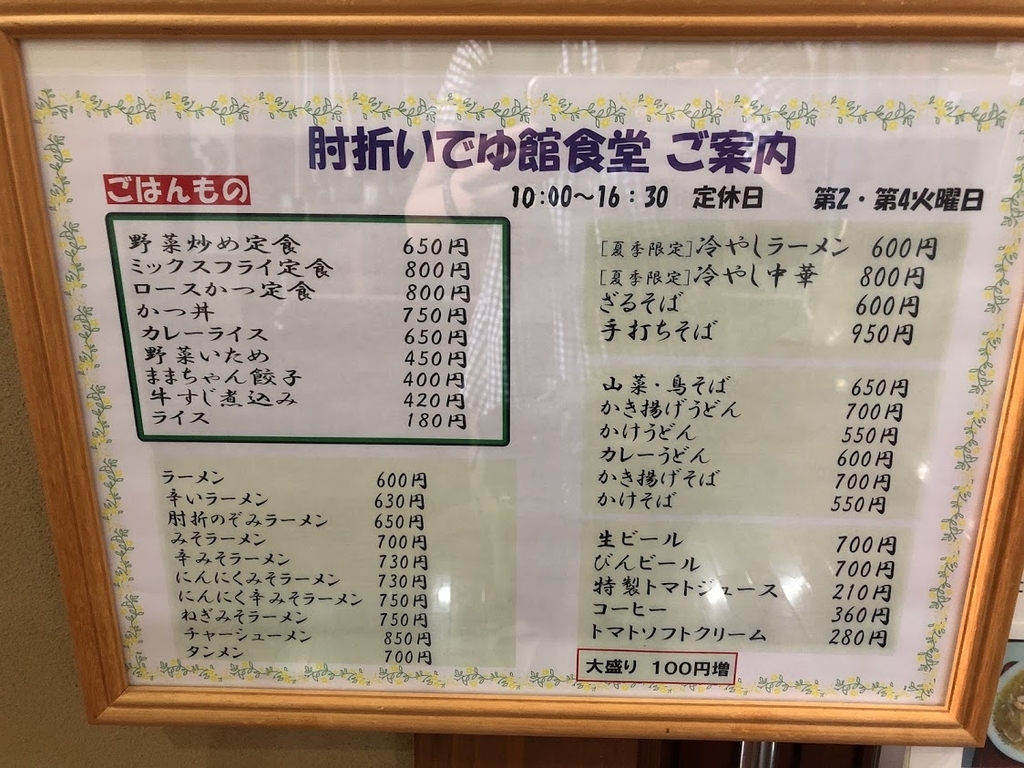 肘折いでゆ館食堂 ご案内
10:00～16:30 定休日 第2・第4火曜日
ごはんもの
野菜炒め定食 650円
ミックスフライ定食 800円
ロースかつ定食 800円
かつ丼 750円
カレーライス 650円
野菜いため 450円
ままちゃん餃子 400円
牛すじ煮込み 420円
ライス 180円
ラーメン 600円
辛いラーメン 630円
肘折のぞみラーメン 650円
みそラーメン 700円
辛みそラーメン 730円
にんにくみそラーメン 730円
にんにく辛みそラーメン 750円
ねぎみそラーメン 750円
チャーシューメン 850円
タンメン 700円
[夏季限定]冷やしラーメン 600円
[夏季限定]冷やし中華 800円
ざるそば 600円
手打ちそば 950円
山菜・鳥そば 650円
かき揚げうどん 700円
かけうどん 550円
カレーうどん 600円
かき揚げそば 700円
かけそば 550円
生ビール 700円
びんビール 700円
特製トマトジュース 210円
コーヒー 360円
トマトソフトクリーム 280円
大盛り 100円増